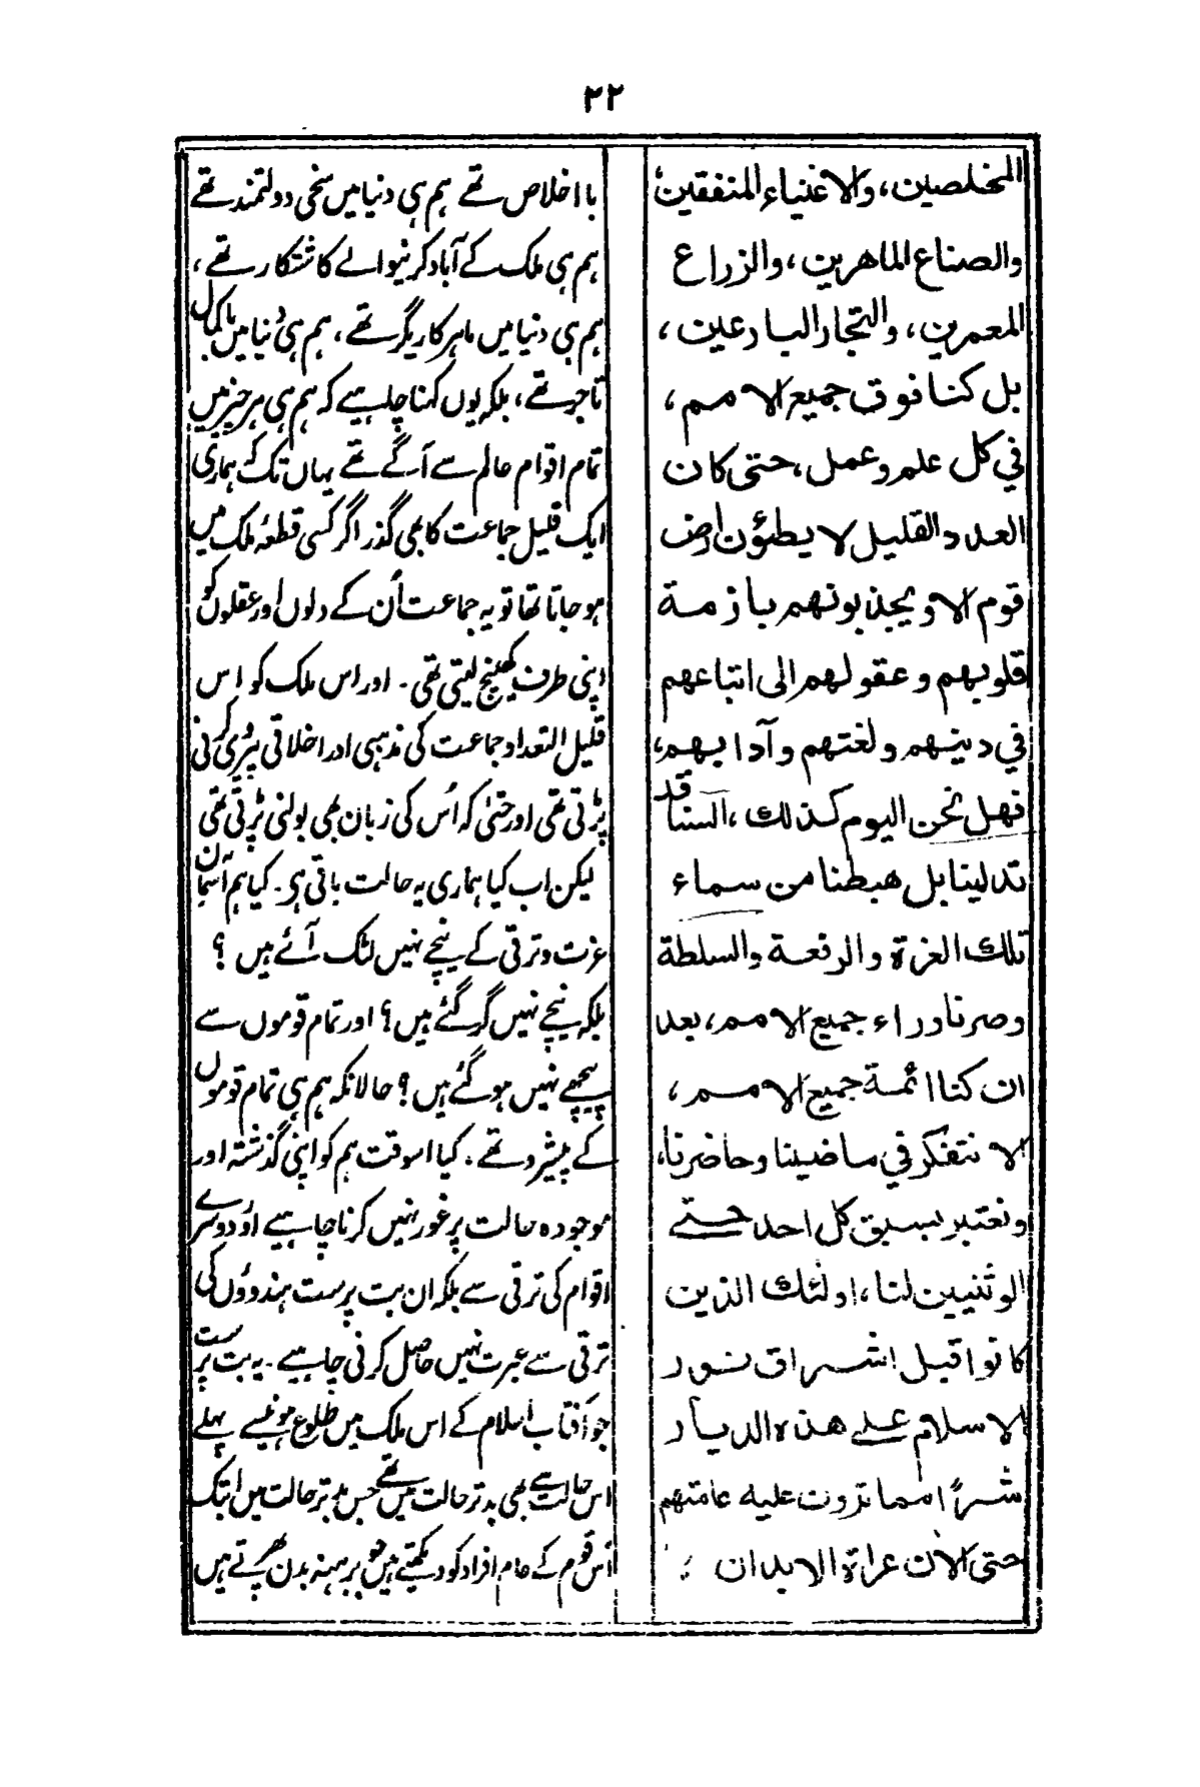 ۲۲
المخلصين، والاغنياء المنفقين،
والصناع الماهرين، والزراع
المعمرين، والتجار البارعين،
بل كنا فوق جميع الامم،
في كل علم وعمل، حتى كان
العدد القليل لا يطؤن ارض
قوم الا ويجذبونهم بازمة
قلوبهم وعقولهم الى اتباعهم
في دينهم ولغتهم وآدابهم،
فهل نحن اليوم كذلك، السنا قد
تدلينا بل هبطنا من سماء
تلك العزة والرفعة والسلطة
وصرنا وراء جميع الامم، بعد
ان كنا ائمة جميع الامم،
الا نتفكر في ماضينا وحاضرنا،
ونعتبر بسبق كل احد حتى
الوثنيين لنا، اولئك الذين
كانوا قبل اشراق نور
الاسلام على هذه الديار
شراً مما ترون عليه عامتهم
حتى الآن عراة الابدان
با اخلاص تھے ہم ہی دنیا میں سخی دولتمند تھے
ہم ہی ملک کے آباد کرنیوالے کاشتکار تھے،
ہم ہی دنیا میں ماہر کاریگر تھے، ہم ہی دنیا میں باکمال
تاجر تھے، بلکہ یوں کہنا چاہیے کہ ہم ہی ہر چیز میں
تمام اقوام عالم سے آگے تھے یہاں تک کہ ہماری
ایک قلیل جماعت کا بھی گذر اگر کسی قطعۂ ملک میں
ہو جاتا تھا تو یہ جماعت اُن کے دلوں اور عقلوں کو
اپنی طرف کھینچ لیتی تھی۔ اور اس ملک کو اِس
قلیل التعداد جماعت کی مذہبی اور اخلاقی پیروی کرنی
پڑتی تھی اور حتیٰ کہ اُس کی زبان بھی بولنی پڑتی تھی
لیکن اب کیا ہماری یہ حالت باقی ہی۔ کیا ہم آسمان
عزت و ترقی کے نیچے نہیں لٹک آئے ہیں ؟
بلکہ نیچے نہیں گر گئے ہیں؟ اور تمام قوموں سے
پیچھے نہیں ہو گئے ہیں؟ حالانکہ ہم ہی تمام قوموں
کے پیشرو تھے۔ کیا اسوقت ہم کو اپنی گذشتہ اور
موجودہ حالت پر غور نہیں کرنا چاہیے اور دوسرے
اقوام کی ترقی سے بلکہ ان بت پرست ہندوؤں کی
ترقی سے عبرت نہیں حاصل کرنی چاہیے۔ یہ بت پرست
جو آفتاب اسلام کے اس ملک میں طلوع ہونیسے پہلے
اس حالت سے بھی بدتر حالت میں تھے جس بدتر حالت میں ابتک
اُس قوم کے عام افراد کو دیکھتے ہیں جو برہنہ بدن پھرتے ہیں